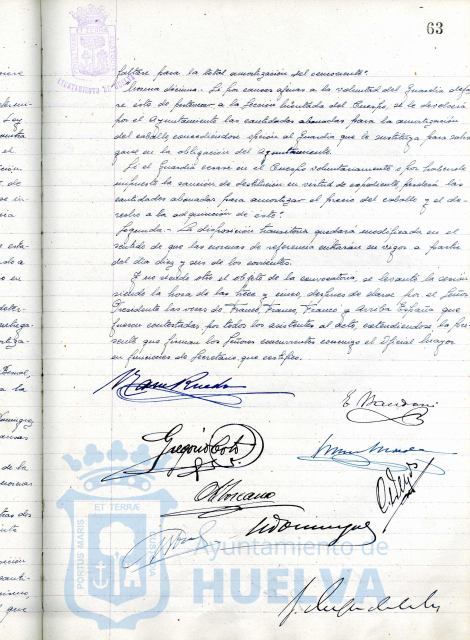 63
faltare para la total amortización del semoviente".
"Norma décima.- Si por causas ajenas a la voluntad del Guardia deja-
re éste de pertenecer a la Sección Montada del Cuerpo, se le devolverá
por el Ayuntamiento las cantidades abonadas para la amortización
del caballo, concediéndose opción al Guardia que le sustituya para subro
garse en la obligación del Ayuntamiento.
Si el Guardia cesare en el Cuerpo voluntariamente o por habérsele
impuesto la sanción de destitución en virtud de expediente, perderá las
cantidades abonadas para amortizar el precio del caballo y el de-
recho a la adquisición de éste".
Segunda.- La disposición transitoria quedará modificada en el
sentido de que las normas de referencia entrarán en vigor a partir
del día diez y seis de los corrientes.
Y no siendo otro el objeto de la convocatoria, se levantó la sesión
siendo la hora de las trece y cinco, después de darse por el Señor
Presidente las voces de Franco, Franco, Franco y Arriba España que
fueron contestadas por todos los asistentes al acto, extendiéndose la pre-
sente que firman los Señores concurrentes conmigo el Oficial Mayor
en funciones de Secretario que certifico.
Gregorio
Domínguez
PORTUS MARIS
ET TERRAE
Ayuntamiento de
HUELVA